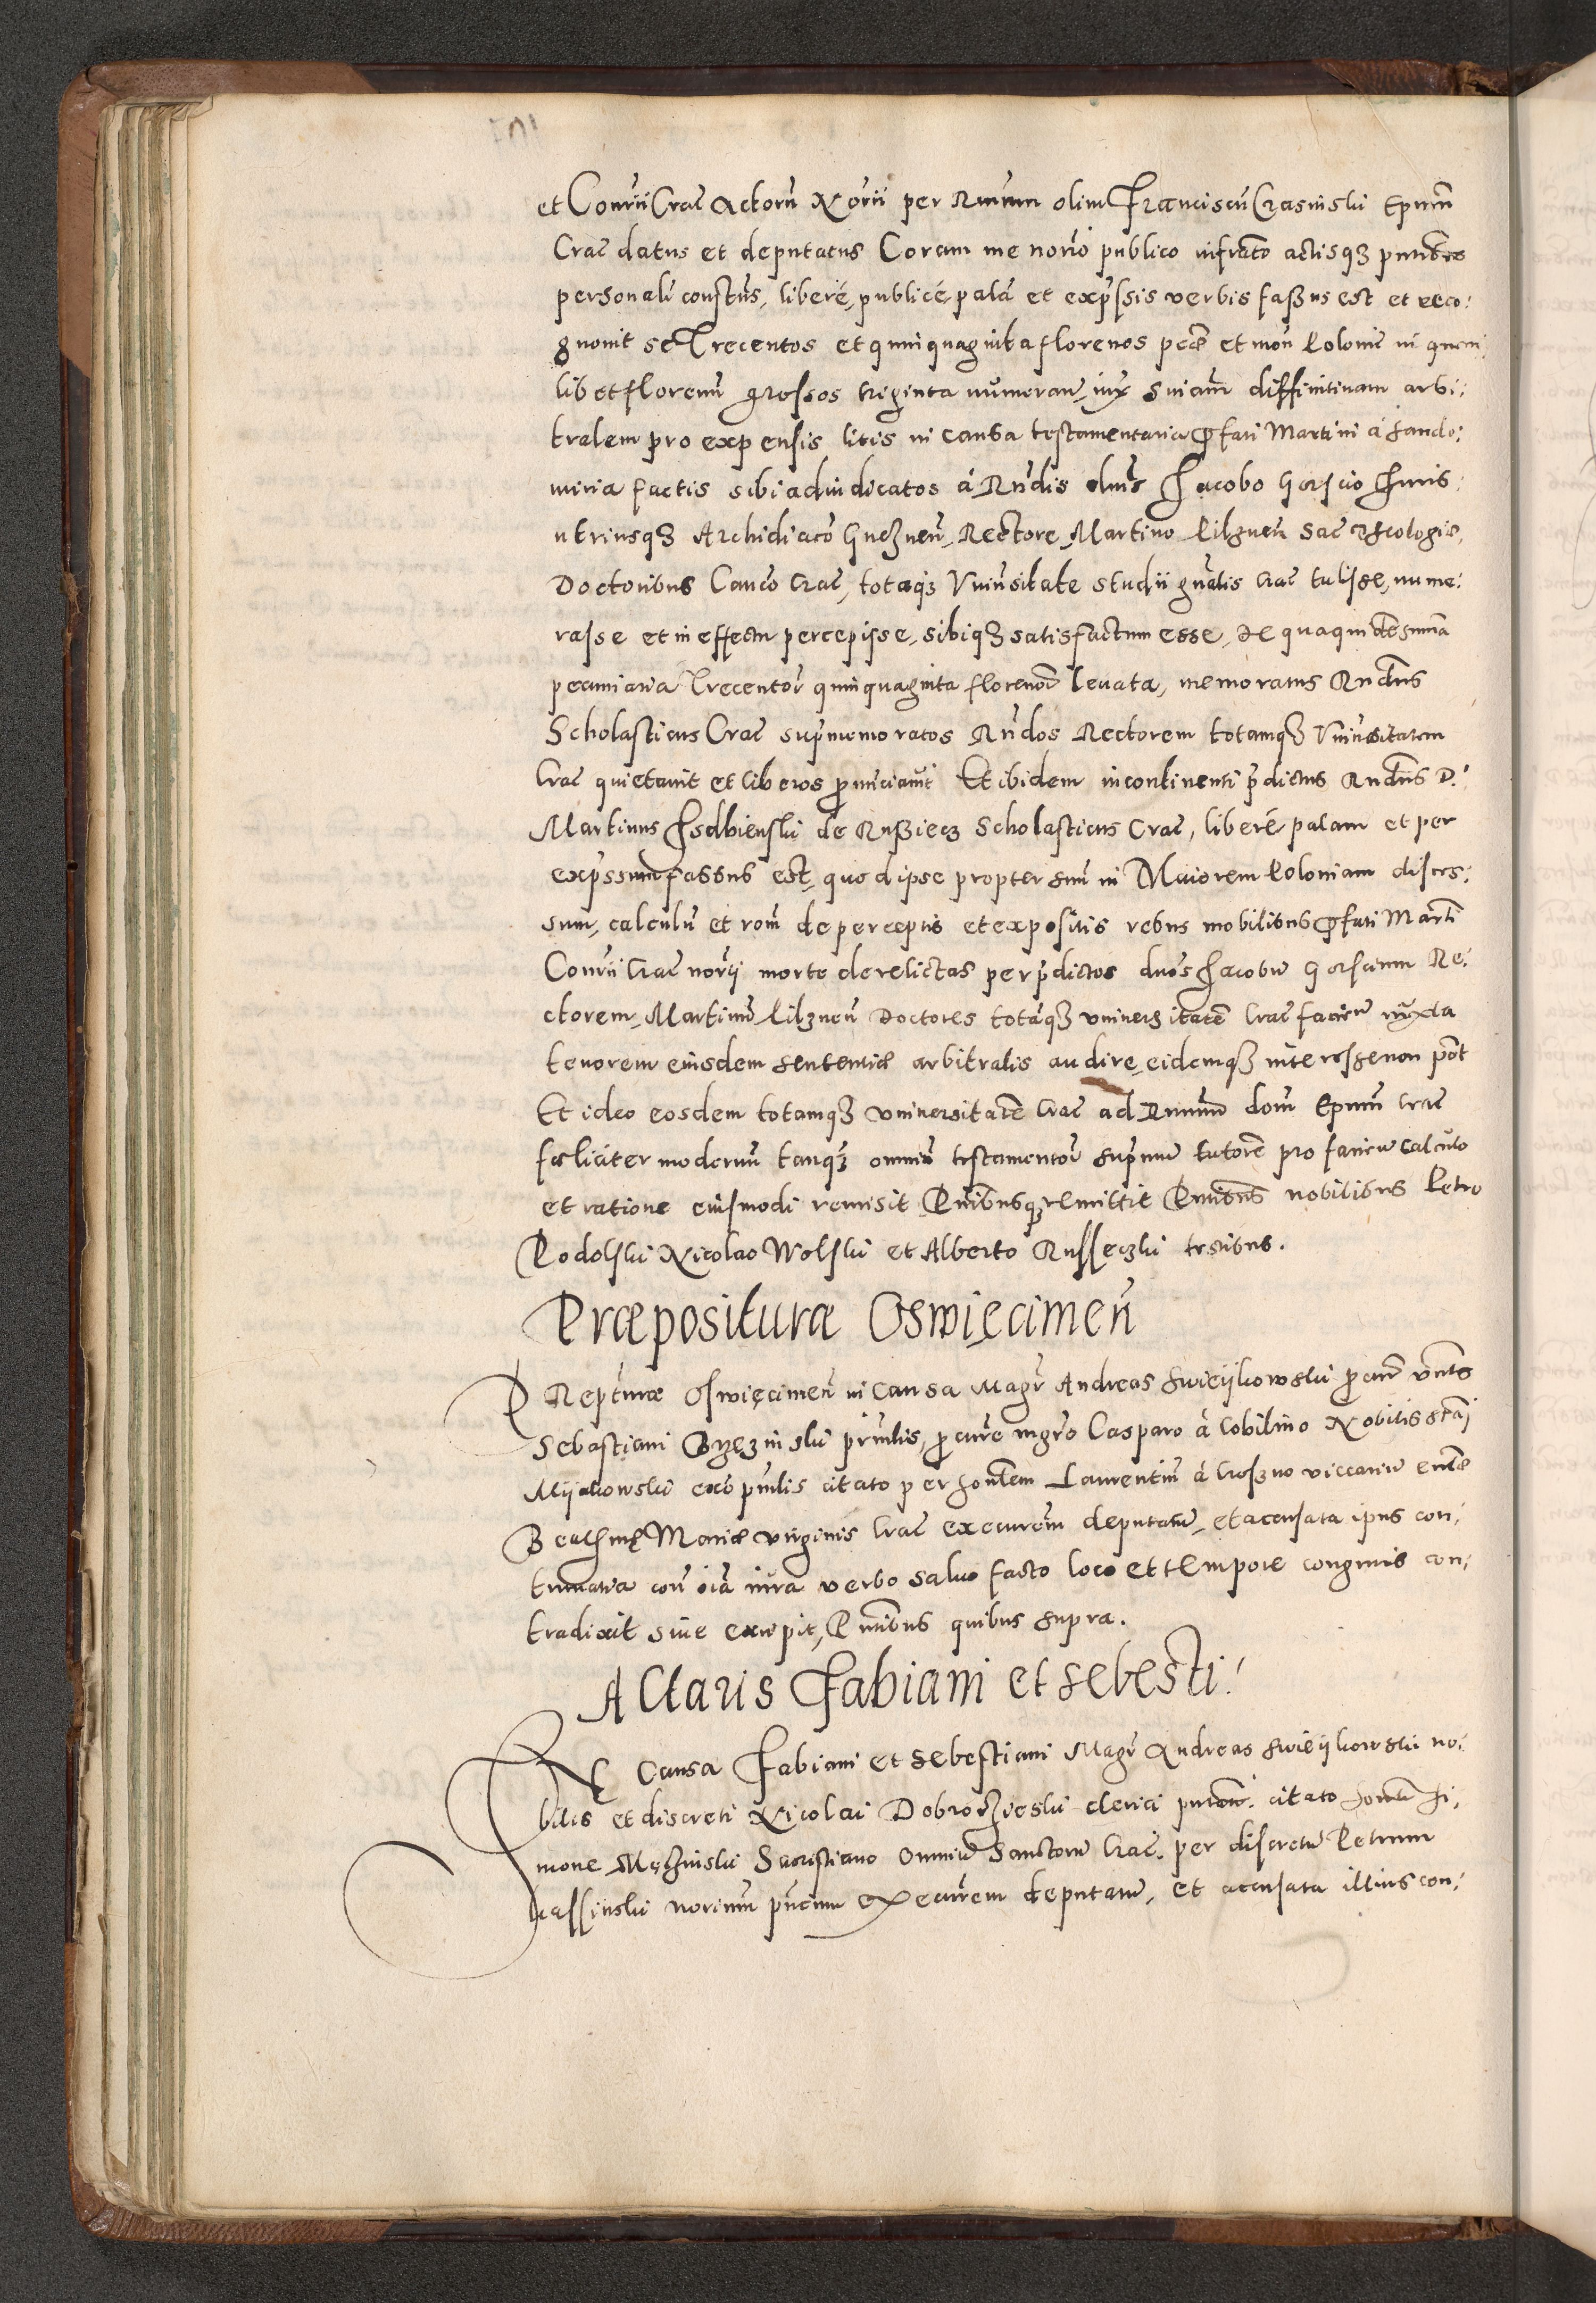 et Consrii Crac Actorū Notrii per Rmum olim Franciscū Crasinski Epūm
Crac datus et deputatus Coram me norio publico infrato actisqȝ pntibus
personalr constūs, liberé, publicé, palā et exprssis verbis faßus est et reco:
gnovit se Trecentos et quinquaginta florenos pecē et mon Polonie in quem
libet florenū grossos triginta numeran, iux sniam diffinitivam arbi:
tralem pro expensis litis in causa testamentaria pfati Martini á Sando:
miria factis sibi adiudicatos á Rndis dnis Jacobo Gorscio Juris
utriusqȝ Archidiaco Gneznen, Rectore, Martino Pilznen Sac Theologie,
Doctoribus Canco Crac, totaqȝ Vniusitate studii gnalis Crac tulisse, nume:
rasse et in effectu percepisse, sibiqȝ satisfactum esse, De quaquidē summa
pecuniaria Trecentor quinquaginta florenor levata, memoratus Rndus
Scholasticus Crac suprmemoratos Rndos Rectorem totamqȝ Vniusitatem
Crac quietavit et liberos pnunciavit Et ibidem incontinenti pdictus Rndus D.
Martinus Isdbienski de Rußiecz Scholasticus Crac, liberé palam et per
exprssum fassus est, quod ipse propter suū in Maiorem Poloniam disces:
sum, calculū et ronē de perceptis et expositis rebus mobilibus pfati Marti
Consrii Crac norii morte derelictas per pdictos dnos Jacobū Gorscium Re:
ctorem, Martinū Pilznen Doctores totāqȝ universitatē Crac faciēn iuxta
tenorem eiusdem sententiæ arbitralis audire, eidemqȝ interesse non pōt
Et ideo eosdem totamqȝ universitatē Crac ad Rmum dom Epum Crac
fæliciter modernū tanqȝ omniū testamentor suprmū tutorē pro faciēn calculo
et ratione eiusmodi remisit Pntibusqȝ remittit Pntibus nobilibus Petro
Podolski Nicolao Wolski et Alberto Russeczki testibus.
Præpositurae Oswięcimen̄
PRepturæ Oswięcimen̄ in causa Magr Andreas Swieÿkowski pcur vents
Sebastiani Brzęzinski prinlis, pcure mgro Casparo á Cobilino Nobilis Stai
Mÿskowski exco pnlis citato per honlem Laurentiū á Crosno viccariū eccæ
Beatissimę Mariæ virginis Crac executrem deputatū, et accusata ipus con:
tumatia con oīa iura verbo salvo facto loco et tempore congruis con:
tradixit sive excepit, Pntibus quibus supra.
Altaris Fabiani et Sebesti:
IN Causa Fabiani et Sebestiani Magr Andreas Swieÿkowski no:
bilis et discreti Nicolai Dobroczieski clerici pnton. citato honor Si:
mone Mężinski Sacristiano Omniū Sanctorū Crac. per discretū Petrum
Kassinski norium pucum executrem deputatū, et accusata illius con: